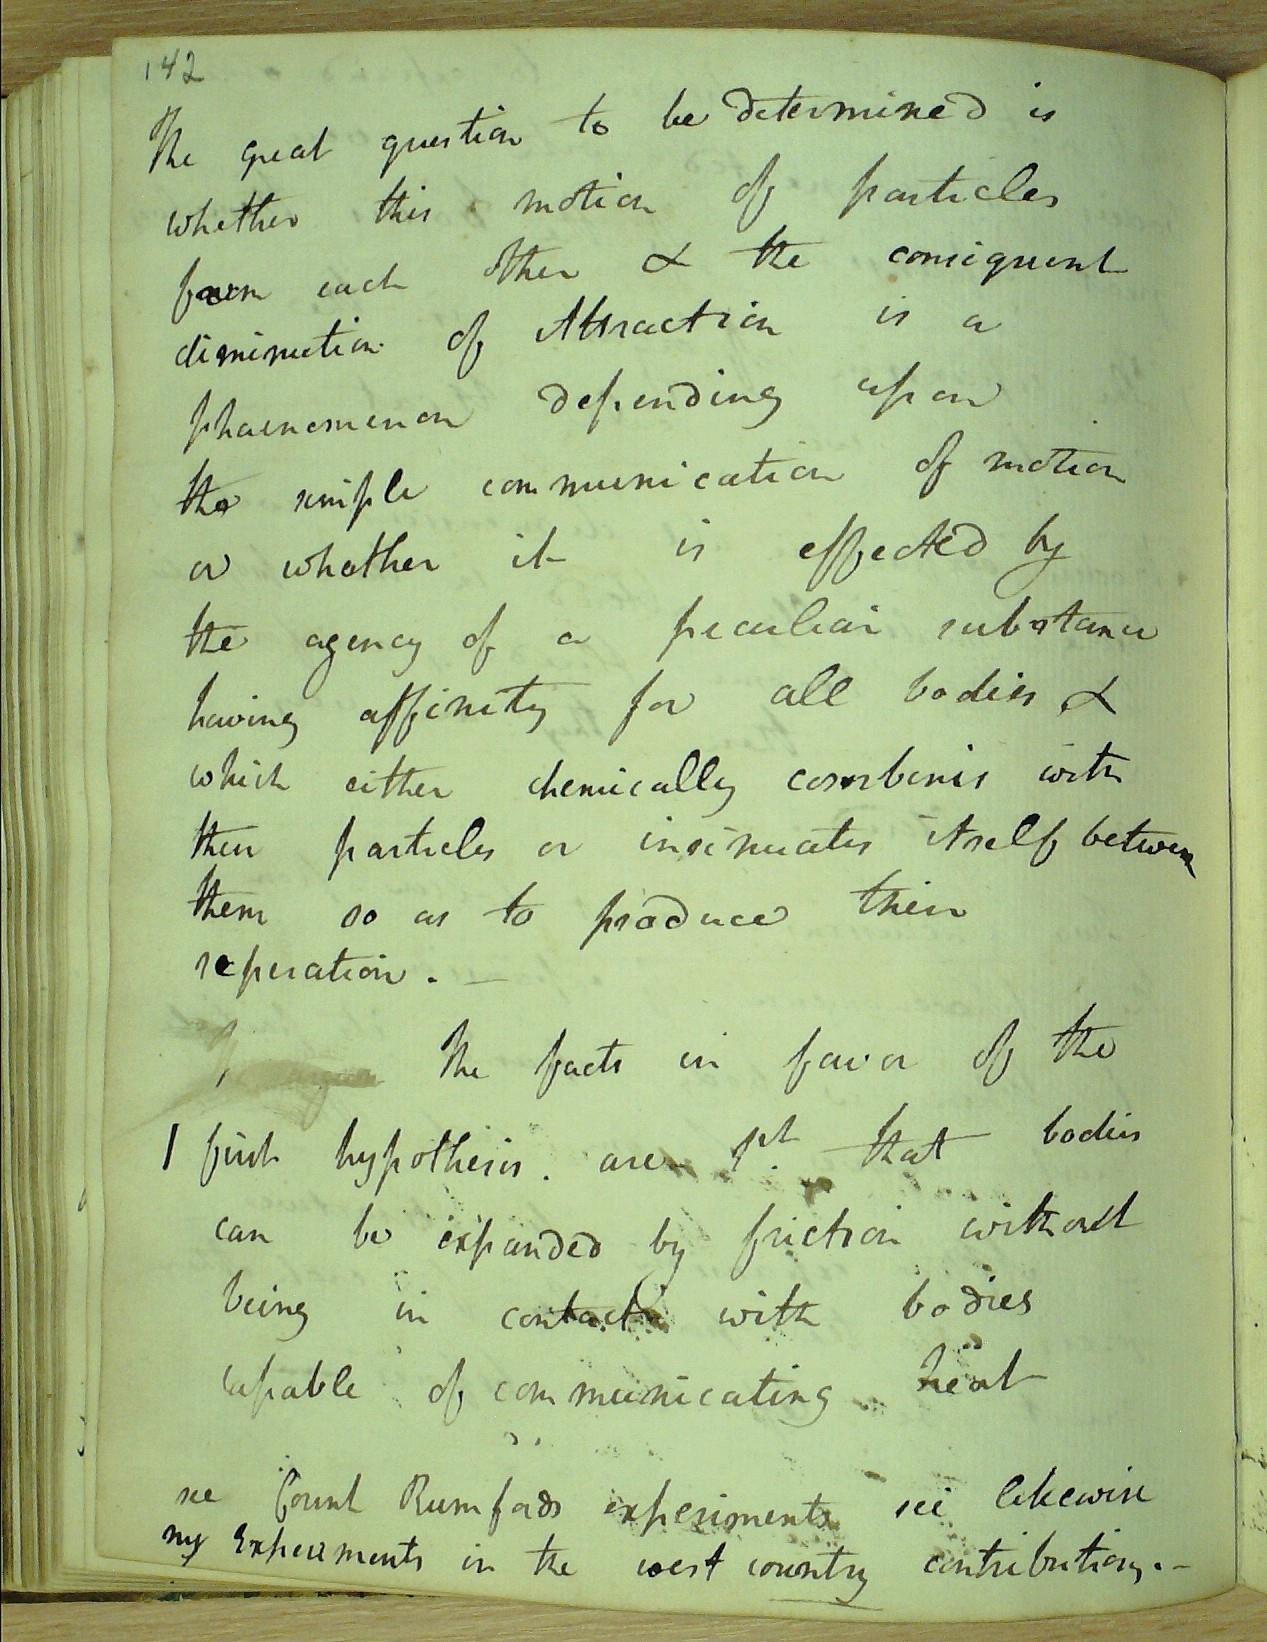 142
The great question to be determined is
whether this motion of particles
from each other & the consequent
diminution of Attraction is a
phaenomenon depending upon
the simple communication of motion
or whether it is effected by
the agency of a peculiar substance
having affinity for all bodies &
which either chemically combines with
their particles or insinuates itself between
them so as to produce their
seperation. —
The facts in favor of the
1 first hypothesis. are 1st. that bodies
can be expanded by friction without
being in contact with bodies
capable of communicating heat
see Count Rumfords experiments see likewise
my Experiments in the west country contributions. —